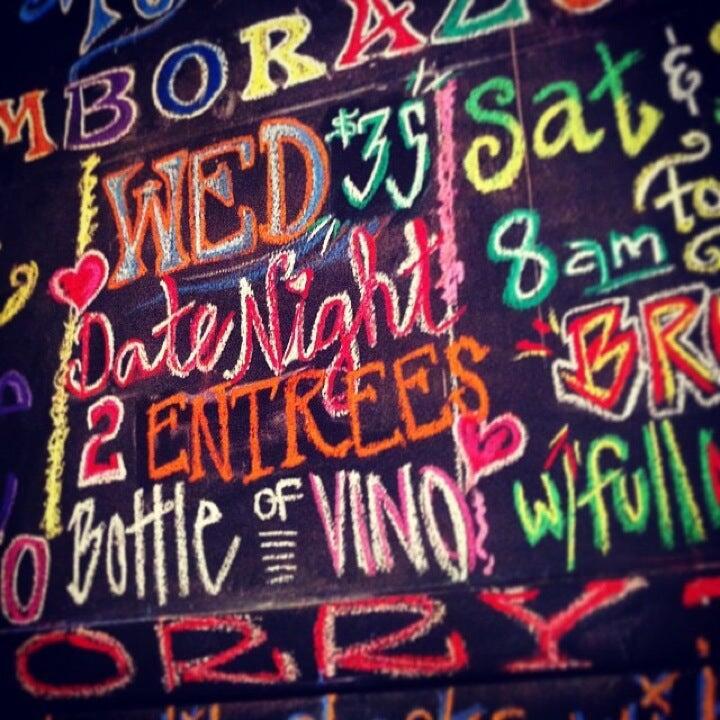 MBORAZO
WED $35
Date Night
2 ENTREES
Bottle OF VINO
Sat &
8am
w/full
ORRY